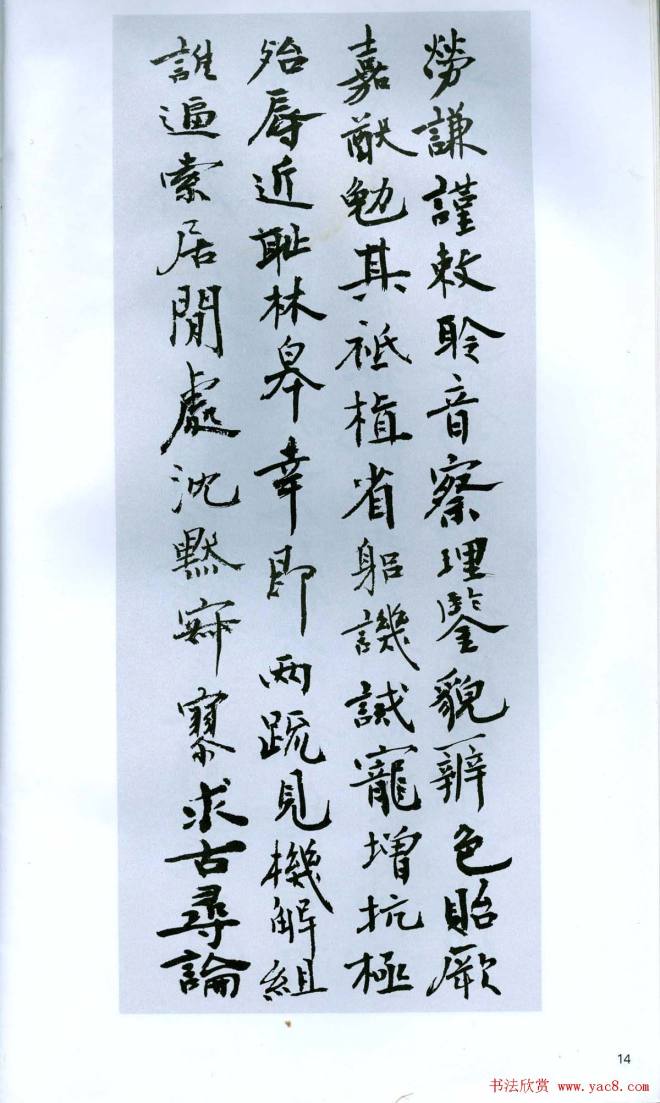 勞謙謹敕聆音察理鑒貌辨色貽厥
嘉猷勉其祗植省躬譏誡寵增抗極
殆辱近恥林皋幸即两疏見機解組
誰逼索居閒處沈默寂寥求古尋論
14
书法欣赏 www.yac8.com